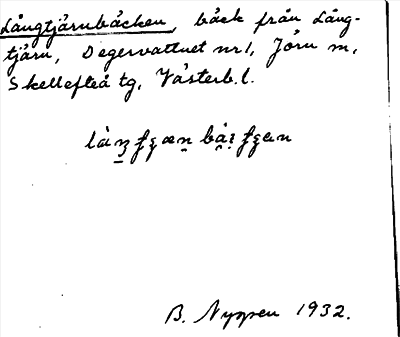 Långtjärnbäcken, bäck från Lång-
tjärn, Degervattnet nr 1, Jörn m,
Skellefteå tg, Västerb. l.
B. Nyman 1932.